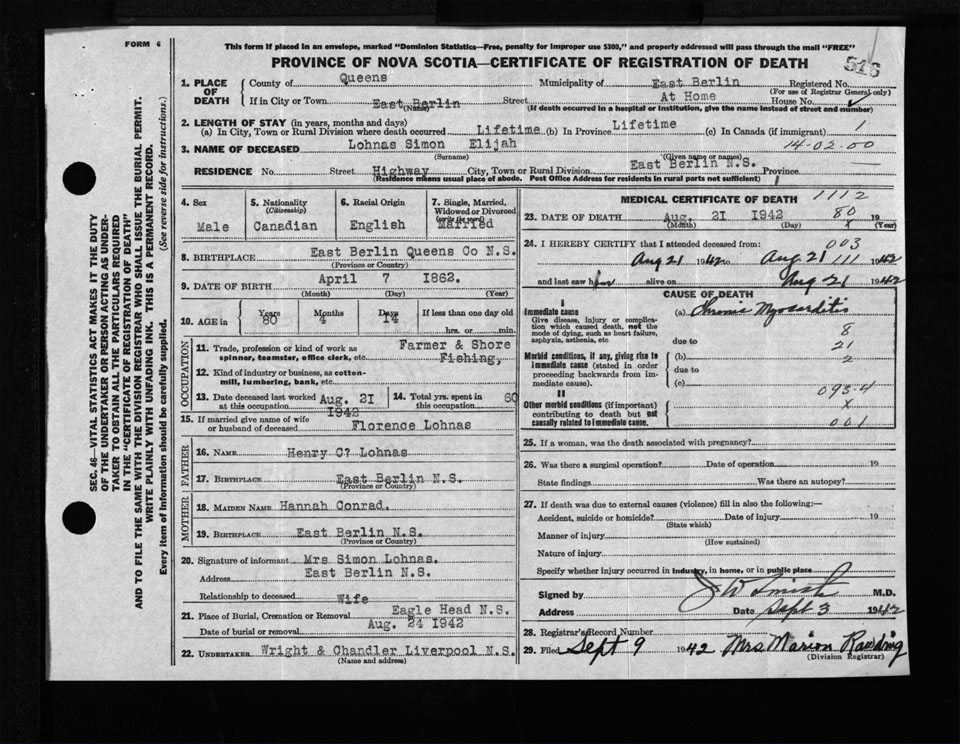 FORM 6
This form if placed in an envelope, marked "Dominion Statistics—Free, penalty for improper use $300," and properly addressed will pass through the mail "FREE"
PROVINCE OF NOVA SCOTIA—CERTIFICATE OF REGISTRATION OF DEATH
516
1. PLACE OF DEATH
County of Queens Municipality of East Berlin Registered No.
(For use of Registrar General only)
If in City or Town East Berlin Street At Home House No.
(Name) (If death occurred in a hospital or institution, give the name instead of street and number)
2. LENGTH OF STAY (in years, months and days)
(a) In City, Town or Rural Division where death occurred Lifetime (b) In Province Lifetime (c) In Canada (if immigrant) 1
3. NAME OF DECEASED Lohnas Simon Elijah 14-02-00
(Surname) (Given name or names)
RESIDENCE No. Street Highway City, Town or Rural Division East Berlin N.S. Province
(Residence means usual place of abode. Post Office Address for residents in rural parts not sufficient)
4. Sex
Male
5. Nationality
(Citizenship)
Canadian
6. Racial Origin
English
7. Single, Married, Widowed or Divorced
(write the word)
Married
8. BIRTHPLACE East Berlin Queens Co N.S.
(Province or Country)
9. DATE OF BIRTH April 7 1862.
(Month) (Day) (Year)
10. AGE in
Years Months Days If less than one day old
80 4 14 hrs. or min.
OCCUPATION
11. Trade, profession or kind of work as spinner, teamster, office clerk, etc. Farmer & Shore Fishing,
12. Kind of industry or business, as cotton-mill, lumbering, bank, etc.
13. Date deceased last worked at this occupation Aug. 21 1942
14. Total yrs. spent in this occupation 60
15. If married give name of wife or husband of deceased Florence Lohnas
FATHER
16. NAME Henry C? Lohnas
17. BIRTHPLACE East Berlin N.S.
(Province or Country)
MOTHER
18. MAIDEN NAME Hannah Conrad.
19. BIRTHPLACE East Berlin N.S.
(Province or Country)
20. Signature of informant Mrs Simon Lohnas.
Address East Berlin N.S.
Relationship to deceased Wife
21. Place of Burial, Cremation or Removal Eagle Head N.S.
Date of burial or removal Aug. 24 1942
22. UNDERTAKER Wright & Chandler Liverpool N.S.
(Name and address)
MEDICAL CERTIFICATE OF DEATH 1112
23. DATE OF DEATH Aug. 21 1942 80 19
(Month) (Day) x (Year)
24. I HEREBY CERTIFY that I attended deceased from: 003
Aug 21 1942 to Aug 21 111 1942
and last saw him alive on Aug 21 1942
CAUSE OF DEATH
I
Immediate cause
Give disease, injury or complication which caused death, not the mode of dying, such as heart failure, asphyxia, asthenia, etc
(a) Chronic Myocarditis
8
due to 21
Morbid conditions, if any, giving rise to immediate cause (stated in order proceeding backwards from immediate cause).
(b) 2
due to
(c)
093-4
II
Other morbid conditions (if important) contributing to death but not causally related to immediate cause.
x
001
25. If a woman, was the death associated with pregnancy?
26. Was there a surgical operation? Date of operation 19
State findings Was there an autopsy?
27. If death was due to external causes (violence) fill in also the following:
Accident, suicide or homicide? Date of injury 19
(State which)
Manner of injury
(How sustained)
Nature of injury
Specify whether injury occurred in Industry, in home, or in public place
Signed by J W Smith M.D.
Address Date Sept 3 1942
28. Registrar's Record Number
29. Filed Sept 9 1942 Mrs Marion Rawding
(Division Registrar)
SEC. 46—VITAL STATISTICS ACT MAKES IT THE DUTY
OF THE UNDERTAKER OR PERSON ACTING AS UNDER-
TAKER TO OBTAIN ALL THE PARTICULARS REQUIRED
IN THE "CERTIFICATE OF REGISTRATION OF DEATH"
AND TO FILE THE SAME WITH THE DIVISION REGISTRAR WHO SHALL ISSUE THE BURIAL PERMIT.
WRITE PLAINLY WITH UNFADING INK. THIS IS A PERMANENT RECORD.
Every item of information should be carefully supplied. (See reverse side for instructions.)